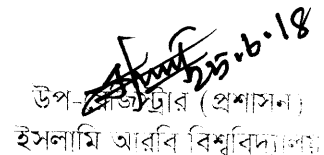 ২৫.৬.18
উপ-রেজিস্ট্রার (প্রশাসন)
ইসলামি আরবি বিশ্ববিদ্যালয়